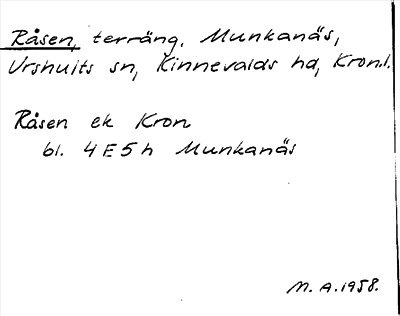 Råsen, terräng, Munkanäs,
Urshults sn, Kinnevalds hd, Kron.l.
Råsen ek Kron
bl. 4E5h Munkanäs
M.A.1958.